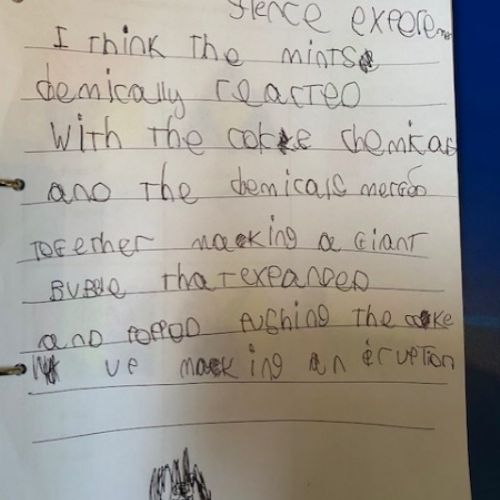 SIence expore
I think the mints
chemically reacted
with the coke chemicas
and the chemicals merged
together macking a giant
Bubble that expanded
and popped pushing the coke
up macking an eruption